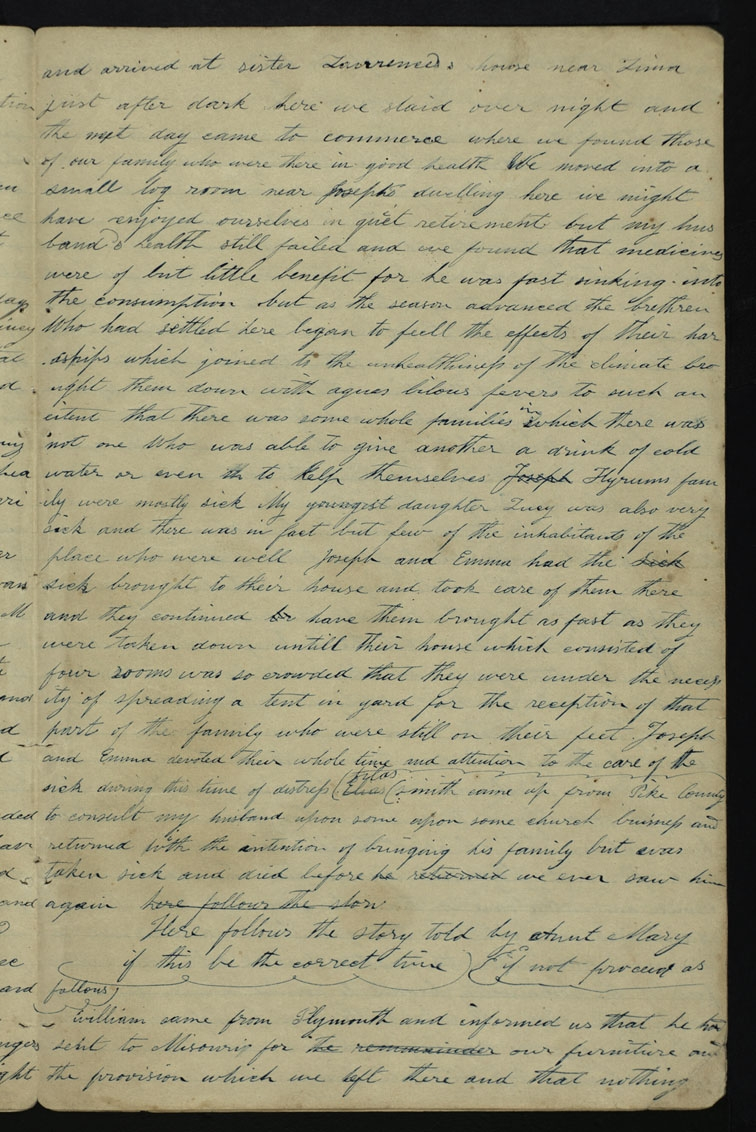 and arrived at sister Lawrence's house near Lima
just after dark here we staid over night and
the next day came to commerce where we found those
of our family who were there in good health We moved into a
small log room near Josephs dwelling here we might
have enjoyed ourselves in quiet retirement but my hus
band's health still failed and we found that medicines
were of but little benefit for he was fast sinking into
the consumption but as the season advanced the brethren
Who had settled here began to feell the effects of their har
dships which joined to the unhealthiness of the climate bro
ught them down with agues bilous fevers to such an
extent that there was some whole families in which there was
not one Who was able to give another a drink of cold
water or even th to help themselves Joseph Hyrums fam
ily were mostly sick My youngest daughter Lucy was also very
sick and there was in fact but few of the inhabitants of the
place who were well Joseph and Emma had the sick
sick brought to their house and took care of them there
and they continued to have them brought as fast as they
were taken down untill their house which consisted of
four rooms was so crowded that they were under the necess
ity of spreading a tent in yard for the reception of that
part of the family who were still on their feet Joseph
and Emma devoted their whole time and attention to the care of the
sick during this time of distress (Silas Smith came up from Pike County
to consult my husband upon some upon some church buisness and
returned with the intention of bringing his family but was
taken sick and died before he returned we ever saw him
again here follows the story
Here follows the story told by aunt Mary
if this be the correct time) (if not proceed as
follows)
William came from Plymouth and informed us that he had
sent to Misouri for the remmainder our furniture and
the provision which we left there and that nothing